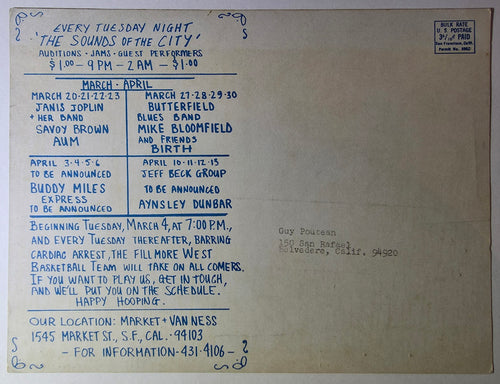 EVERY TUESDAY NIGHT
"THE SOUNDS OF THE CITY"
AUDITIONS - JAMS - GUEST PERFORMERS
$1.00 - 9 PM - 2 AM - $1.00
MARCH - APRIL
MARCH 20-21-22-23
JANIS JOPLIN
+ HER BAND
SAVOY BROWN
AUM
MARCH 27-28-29-30
BUTTERFIELD
BLUES BAND
MIKE BLOOMFIELD
AND FRIENDS
BIRTH
APRIL 3-4-5-6
TO BE ANNOUNCED
BUDDY MILES
EXPRESS
TO BE ANNOUNCED
APRIL 10-11-12-13
JEFF BECK GROUP
TO BE ANNOUNCED
AYNSLEY DUNBAR
BEGINNING TUESDAY, MARCH 4, AT 7:00 P.M.,
AND EVERY TUESDAY THEREAFTER, BARRING
CARDIAC ARREST, THE FILLMORE WEST
BASKETBALL TEAM WILL TAKE ON ALL COMERS.
IF YOU WANT TO PLAY US, GET IN TOUCH,
AND WE'LL PUT YOU ON THE SCHEDULE.
HAPPY HOOPING.
OUR LOCATION: MARKET + VAN NESS
1545 MARKET ST., S.F., CAL. 94103
- FOR INFORMATION - 431-4106 -
BULK RATE
U. S. POSTAGE
PAID
San Francisco, Calif.
Permit No.
Guy Poutean
150 San Rafael
Belvedere, Calif. 94920